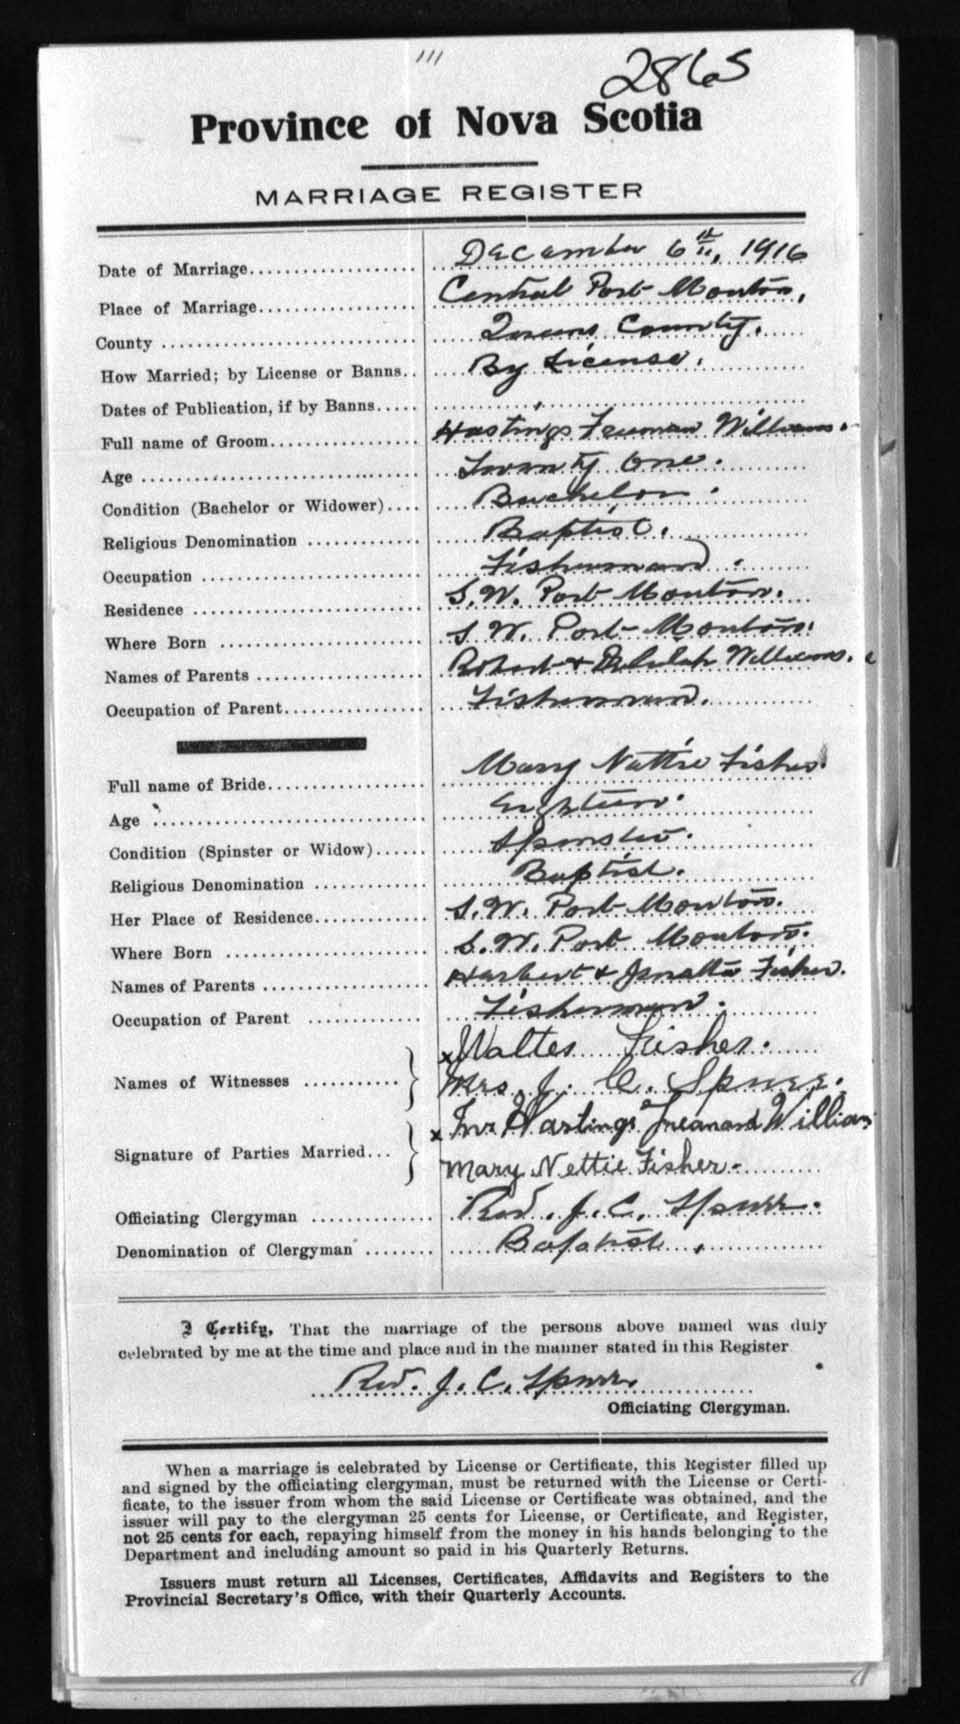 111
2865
Province of Nova Scotia
MARRIAGE REGISTER
Date of Marriage.................... December 6th, 1916
Place of Marriage.................... Central Port Mouton,
County .................... Queens County.
How Married; by License or Banns.. By License.
Dates of Publication, if by Banns.....
Full name of Groom.................... Hastings Freeman Williams.
Age .................... Twenty One.
Condition (Bachelor or Widower).... Bachelor.
Religious Denomination ............. Baptist.
Occupation .................... Fisherman.
Residence .................... S.W. Port Mouton.
Where Born .................... S.W. Port Mouton.
Names of Parents .................... Robert & Delilah Williams.
Occupation of Parent................. Fisherman.
Full name of Bride.................... Mary Nettie Fisher.
Age .................... Eighteen.
Condition (Spinster or Widow)...... Spinster.
Religious Denomination ............. Baptist.
Her Place of Residence............. S.W. Port Mouton.
Where Born .................... S.W. Port Mouton.
Names of Parents .................... Herbert & Fisher.
Occupation of Parent ............. Fisherman.
x Walter Fisher.
Names of Witnesses ...........
Mrs. J. C. Spurr.
x Hastings Williams
Signature of Parties Married...
Mary Nettie Fisher.
Officiating Clergyman ............. Rev. J. C. Spurr.
Denomination of Clergyman ........ Baptist.
I Certify, That the marriage of the persons above named was duly
celebrated by me at the time and place and in the manner stated in this Register
Rev. J. C. Spurr.
Officiating Clergyman.
When a marriage is celebrated by License or Certificate, this Register filled up
and signed by the officiating clergyman, must be returned with the License or Certi-
ficate, to the issuer from whom the said License or Certificate was obtained, and the
issuer will pay to the clergyman 25 cents for License, or Certificate, and Register,
not 25 cents for each, repaying himself from the money in his hands belonging to the
Department and including amount so paid in his Quarterly Returns.
Issuers must return all Licenses, Certificates, Affidavits and Registers to the
Provincial Secretary's Office, with their Quarterly Accounts.